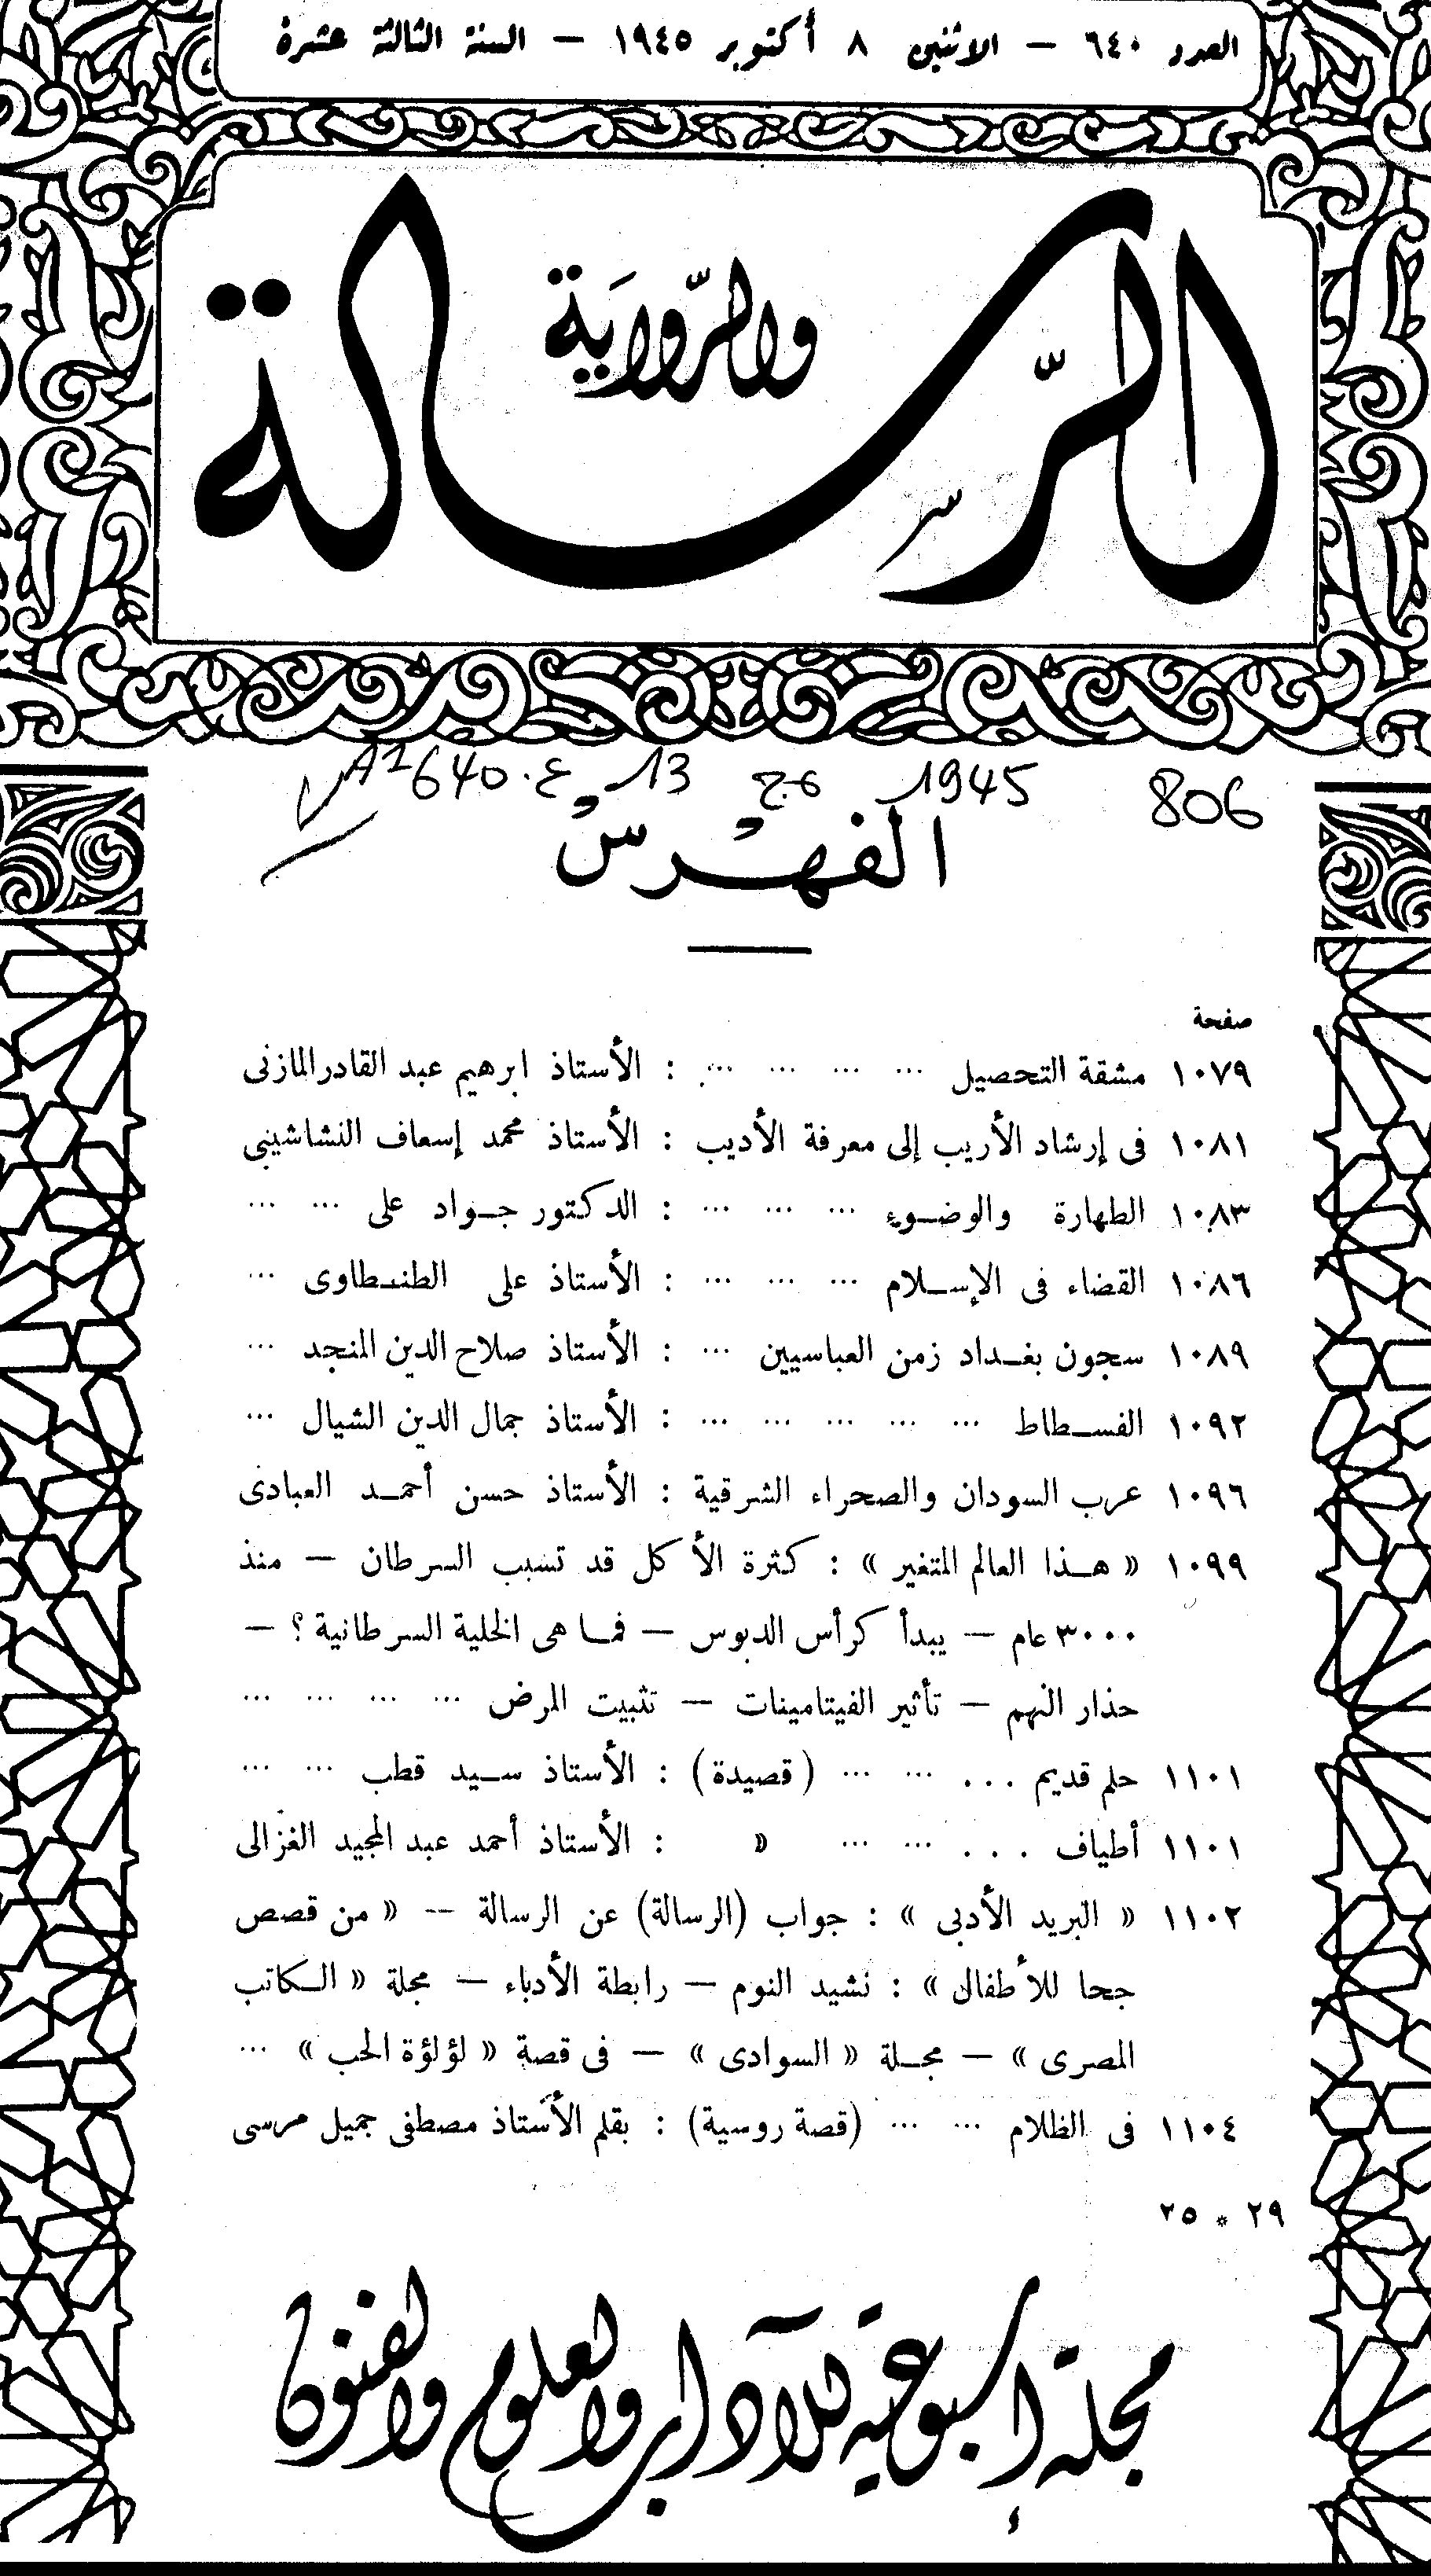 العدد ٦٤٠ — الاثنين ٨ أكتوبر ١٩٤٥ — السنة الثالثة عشرة
الرسالة
والرواية
806 1945 13 ع. 640
الفهرس
صفحة
١٠٧٩ مشقة التحصيل ... ... ... ... : الأستاذ ابرهيم عبد القادر المازنى
١٠٨١ فى إرشاد الأريب إلى معرفة الأديب : الأستاذ محمد إسعاف النشاشيبى
١٠٨٣ الطهارة والوضوء ... ... ... : الدكتور جواد على ... ...
١٠٨٦ القضاء فى الإسلام ... ... ... : الأستاذ على الطنطاوى ...
١٠٨٩ سجون بغداد زمن العباسيين ... : الأستاذ صلاح الدين المنجد ...
١٠٩٢ الفسطاط ... ... ... ... ... : الأستاذ جمال الدين الشيال ...
١٠٩٦ عرب السودان والصحراء الشرقية : الأستاذ حسن أحمد العبادى
١٠٩٩ « هذا العالم المتغير » : كثرة الأكل قد تسبب السرطان — منذ
٣٠٠٠ عام — يبدأ كرأس الدبوس — فما هى الخلية السرطانية ؟ —
حذار النهم — تأثير الفيتامينات — تثبيت المرض ... ... ... ...
١١٠١ حلم قديم ... ... ... (قصيدة) : الأستاذ سيد قطب ... ...
١١٠١ أطياف ... ... ... » : الأستاذ أحمد عبد المجيد الغزالى
١١٠٢ « البريد الأدبى » : جواب (الرسالة) عن الرسالة -- « من قصص
جحا للأطفال » : نشيد النوم — رابطة الأدباء — مجلة « الكاتب
المصرى » — مجلة « السوادى » — فى قصة « لؤلؤة الحب » ...
١١٠٤ فى الظلام ... ... (قصة روسية) : بقلم الأستاذ مصطفى جميل مرسى
٢٩ * ٢٥
مجلة إسبوعية للآداب والعلوم والفنون